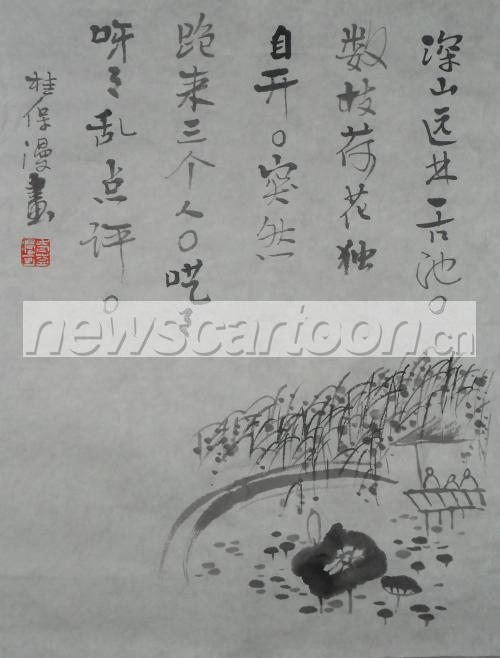 深山远林一古池。
数枝荷花独
自开。突然
跑来三个人。
呀々乱点评。
桂保漫畫
newscartoon.cn